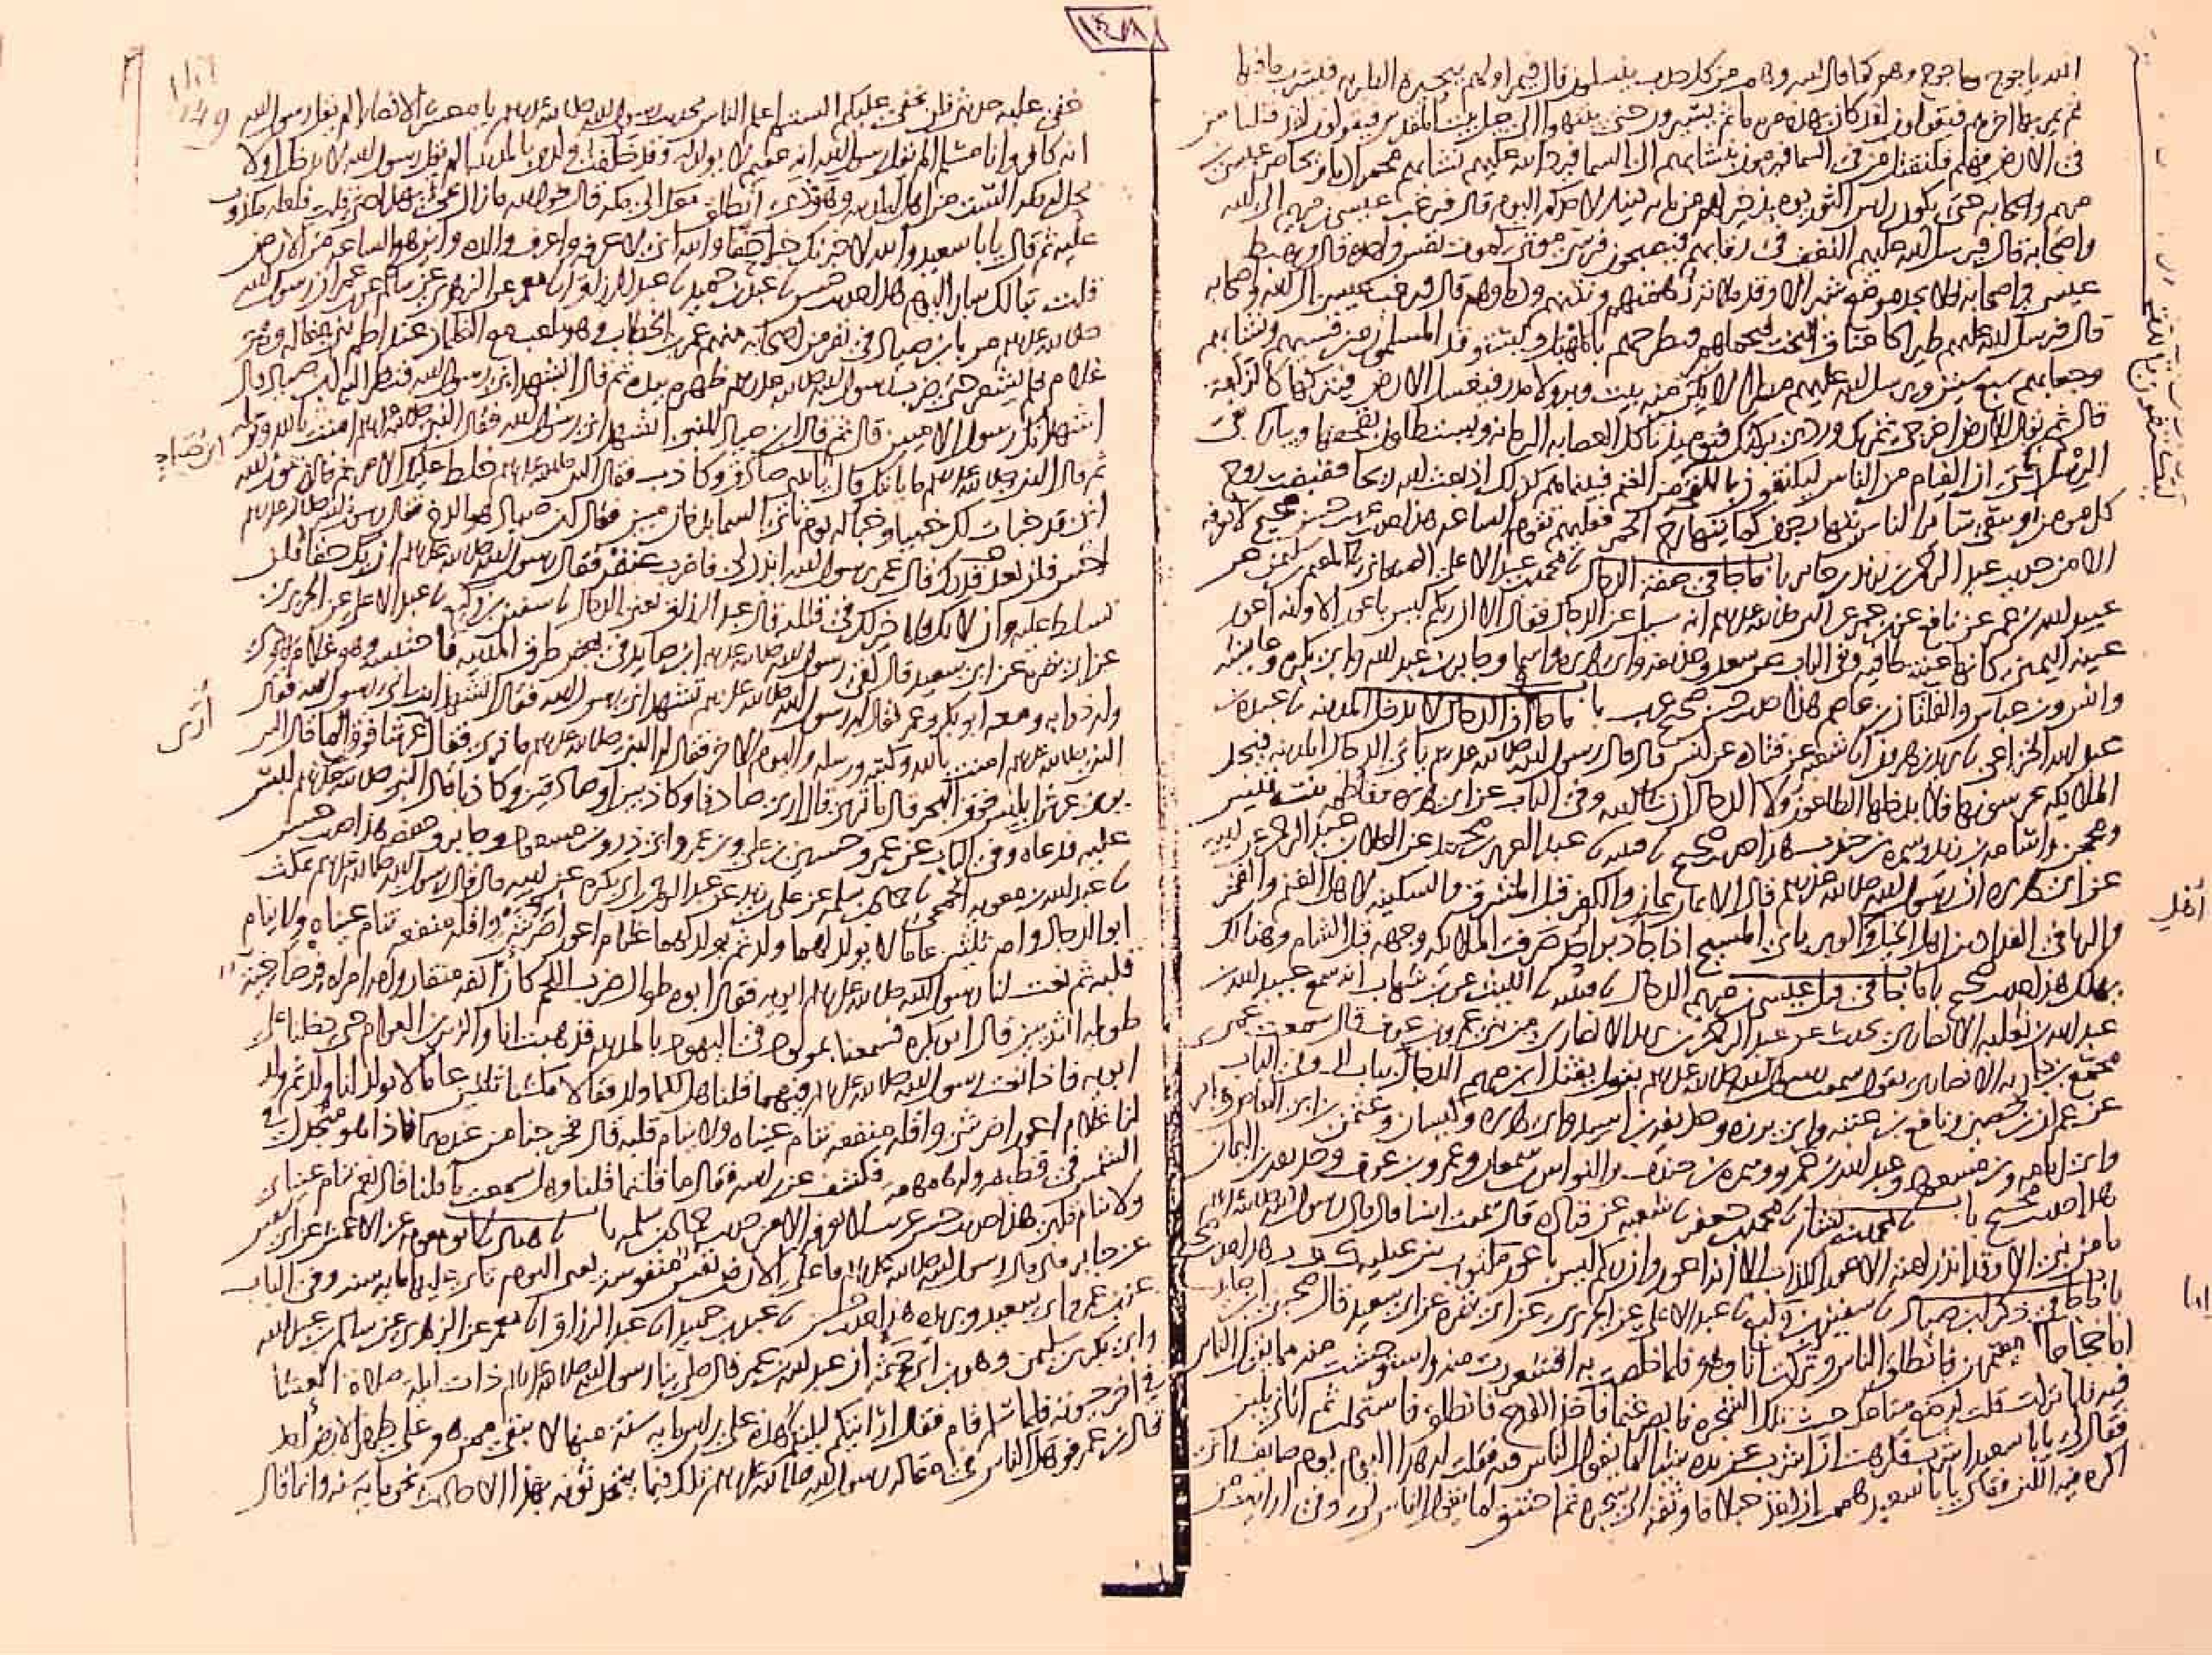 ١٤٨
الله ياجوج وماجوج وهو كما قال الله وهم من كل حدب ينسلون قال فيمر اولهم ببحيرة الطبرية فيشرب ما فيها
ثم يمر بها اخرهم فيقولون لقد كان بهذه مرة ماء ثم يسيرون حتى ينتهوا الى جبل بيت المقدس فيقولون لقد قتلنا من
في الارض فهلم فلنقتل من في السما فيرمون بنشابهم الى السما فيرد الله عليهم نشابهم محمرا دما ويحاصر عيسى بن
مريم واصحابه حتى يكون راس الثور يومئذ خيرا لهم من مايه دينار لاحدكم اليوم قال فيرغب عيسى بن مريم الى الله
واصحابه قال فيرسل الله عليهم النغف في رقابهم فيصبحون فرسى موتى كموت نفس واحدة قال ويهبط
عيسى واصحابه فلا يجد موضع شبر الا وقد ملاته زهمتهم ونتنهم ودماوهم قال فيرغب عيسى الى الله واصحابه
قال فيرسل الله عليهم طيرا كاعناق البخت فتحملهم فتطرحهم بالمهبل ويستوقد المسلمون من قسيهم ونشابهم
وجعابهم سبع سنين ويرسل الله عليهم مطرا لا يكن منه بيت وبر ولا مدر فيغسل الارض فيتركها كالزلفة
قال ثم يقال للارض اخرجي ثمرتك وردي بركتك فيومئذ تاكل العصابه الرمانه ويستظلون بقحفها ويبارك في
الرسل حتى ان الفيام من الناس ليكتفون باللقحة من الغنم فبينما هم كذلك اذ بعث الله ريحا فقبضت روح
كل مومن ويبقى سائر الناس يتهارجون كما يتهارج الحمر فعليهم تقوم الساعة هذا حديث غريب حسن صحيح لا نعرفه
الا من حديث عبد الرحمن بن يزيد بن جابر باب ما جا في صفة الدجال نا محمد بن عبد الاعلى الصنعاني نا المعتمر بن سليمن عن
عبيد الله بن عمر عن نافع عن ابن عمر عن النبي صلى الله عليه وسلم انه سئل عن الدجال فقال الا ان ربكم ليس باعور الا وانه اعور
عينه اليمنى كانها عنبة طافية وفي الباب عن سعد وحذيفه وابي هريرة واسما وجابر بن عبد الله وابي بكرة وعايشه
وانس وابن عباس والفلتان بن عاصم هذا حديث حسن صحيح غريب باب ما جا ان الدجال لا يدخل المدينه نا عبدة بن
عبد الله الخزاعي نا يزيد بن هرون انا شعبه عن قتاده عن انس قال قال رسول الله صلى الله عليه وسلم ياتي الدجال المدينه فيجد
الملايكة يحرسونها فلا يدخلها الطاعون ولا الدجال ان شا الله وفي الباب عن ابي هريره وفاطمه بنت قيس
ومحجن واسامه بن زيد وسمرة بن جندب هذا حديث صحيح نا قتيبه نا عبد العزيز بن محمد عن العلا بن عبد الرحمن عن ابيه
عن ابي هريره ان رسول الله صلى الله عليه وسلم قال الايمان يمان والكفر قبل المشرق والسكينه لاهل الغنم والفخر
والريا في الفدادين اهل الخيل والوبر ياتي المسيح اذا جا دبر احد صرفت الملايكه وجهه قبل الشام وهنالك
يهلك هذا حديث صحيح باب ما جا في قتل عيسى بن مريم الدجال نا قتيبه نا الليث عن ابن شهاب انه سمع عبيد الله بن
عبد الله بن ثعلبه الانصاري يحدث عن عبد الرحمن بن يزيد الانصاري من بني عمرو بن عوف قال سمعت عمي
مجمع بن جاريه الانصاري يقول سمعت رسول الله صلى الله عليه وسلم يقول يقتل ابن مريم الدجال بباب لد وفي الباب
عن عمران بن حصين ونافع بن عتبه وابي برزه وحذيفه بن اسيد وابي هريره وكيسان وعثمن بن ابي العاص وجابر
وابي امامه وابن مسعود وعبد الله بن عمرو وسمره بن جندب والنواس بن سمعان وعمرو بن عوف وحذيفه بن اليمان
هذا حديث صحيح باب نا محمد بن بشار نا محمد بن جعفر نا شعبه عن قتاده قال سمعت انسا قال قال رسول الله صلى الله عليه وسلم
ما من نبي الا وقد انذر امته الاعور الكذاب الا انه اعور وان ربكم ليس باعور مكتوب بين عينيه ك ف ر هذا حديث صحيح
باب ما جا في ذكر ابن صياد نا سفين بن وكيع نا عبد الاعلى عن الجريري عن ابي نضرة عن ابي سعيد قال صحبني ابن صايد
اما حجاجا معتمرين فانطلق الناس وتركت انا وهو فلما خلصت به اقشعررت منه واستوحشت منه مما يقول الناس
فيه فلما نزلت قلت له ضع متاعك حيث تلك الشجره فابصر غنما فاخذ القدح فانطلق فاستحلب ثم اتاني بلبن
فقال لي يابا سعيد اشرب فكرهت ان اشرب عن يده شيئا لما يقول الناس فيه فقلت له هذا اليوم يوم صايف واني
اكره فيه اللبن فقال يابا سعيد هممت ان اخذ حبلا فاوثقه الى شجره ثم اختنق لما يقول الناس لي وفي ارايت من
اهل
اما
149
خفي عليه حديثي فلن يخفى عليكم الستم اعلم الناس بحديث رسول الله صلى الله عليه وسلم يا معشر الانصار الم يقل رسول الله
انه كافر وانا مسلم الم يقل رسول الله انه عقيم لا يولد له وقد خلفت ولدي بالمدينه الم يقل رسول الله لا يدخل او لا
تحل له مكه الست من اهل المدينه وهو ذا انطلق معك الى مكه قال فوالله ما زال يجي بهذا حتى قلت فلعله مكذوب
عليه ثم قال يابا سعيد والله لاخبرنك خبرا حقا والله اني لاعرفه واعرف والده واين هو الساعه من الارض
فقلت تبا لك ساير اليوم هذا حديث حسن نا عبد بن حميد نا عبد الرزاق انا معمر عن الزهري عن سالم عن ابن عمر ان رسول الله
صلى الله عليه وسلم مر بابن صياد في نفر من اصحابه منهم عمر بن الخطاب وهو يلعب مع الغلمان عند اطم بني مغاله وهو
غلام فلم يشعر حتى ضرب رسول الله صلى الله عليه وسلم ظهره بيده ثم قال اتشهد اني رسول الله فنظر اليه ابن صياد قال
اشهد انك رسول الاميين قال ثم قال ابن صياد للنبي اتشهد اني رسول الله فقال النبي صلى الله عليه وسلم امنت بالله ورسله
ابن صياد
ثم قال النبي صلى الله عليه وسلم ما ياتيك قال ياتيني صادق وكاذب فقال النبي صلى الله عليه وسلم خلط عليك الامر ثم قال رسول الله
اني قد خبات لك خبيا وخبا له يوم تاتي السما بدخان مبين فقال ابن صياد هو الدخ فقال رسول الله صلى الله عليه وسلم
اخس فلن تعدو قدرك قال عمر يا رسول الله ائذن لي فاضرب عنقه فقال رسول الله صلى الله عليه وسلم ان يك حقا فلن
تسلط عليه وان لا يكنه فلا خير لك في قتله قال عبد الرزاق يعني الدجال نا سفين بن وكيع نا عبد الاعلى عن الجريري
عن ابي نضره عن ابي سعيد قال لقي رسول الله صلى الله عليه وسلم ابن صايد في بعض طرق المدينه فاحتبسه وهو غلام يهودي
وله ذوابه ومعه ابو بكر وعمر فقال له رسول الله صلى الله عليه وسلم تشهد اني رسول الله فقال اتشهد انت اني رسول الله فقال
أرى
النبي صلى الله عليه وسلم امنت بالله وكتبه ورسله واليوم الاخر فقال له النبي صلى الله عليه وسلم ما ترى فقال عرشا فوق الما قال النبي
يرى عرش ابليس فوق البحر قال ما ترى قال ارى صادقا وكاذبين او صادقين وكاذبا قال النبي صلى الله عليه وسلم لبس
عليه فدعاه وفي الباب عن عمر وحسين بن علي وابن عمر وابي ذر وابن مسعود وجابر وحفصه هذا حديث حسن
نا عبد الله بن معويه الجمحي نا حماد بن سلمه عن علي بن زيد عن عبد الرحمن بن ابي بكره عن ابيه قال قال رسول الله صلى الله عليه وسلم يمكث
ابو الدجال وامه ثلثين عاما لا يولد لهما ولد ثم يولد لهما غلام اعور اضر شي واقله منفعه تنام عيناه ولا ينام
قلبه ثم نعت لنا رسول الله صلى الله عليه وسلم ابويه فقال ابوه طوال ضرب اللحم كان انفه منقار وامه امراه فرضاخيه
طويله الثديين قال ابو بكره فسمعنا بمولود في اليهود بالمدينه فذهبت انا والزبير بن العوام حتى دخلنا على
ابويه فاذا نعت رسول الله صلى الله عليه وسلم فيهما قلنا هل لكما ولد فقالا مكثنا ثلثين عاما لا يولد لنا ولد ثم ولد
لنا غلام اعور اضر شي واقله منفعه تنام عيناه ولا ينام قلبه قال فخرجنا من عندهما فاذا هو منجدل في
الشمس في قطيفه وله همهمه فكشف عن راسه فقال ما قلتما قلنا وهل سمعت ما قلنا قال نعم تنام عيناي
ولا ينام قلبي هذا حديث حسن غريب لا نعرفه الا من حديث حماد بن سلمه باب نا هناد نا ابو معويه عن الاعمش عن ابي سفين
عن جابر قال قال رسول الله صلى الله عليه وسلم ما على الارض نفس منفوسه يعني اليوم ياتي عليها مايه سنه وفي الباب
عن ابن عمر وابي سعيد وبريده هذا حديث حسن نا عبد بن حميد انا عبد الرزاق انا معمر عن الزهري عن سالم بن عبد الله
وابي بكر بن سليمن وهو ابن ابي حثمه ان عبد الله بن عمر قال صلى بنا رسول الله صلى الله عليه وسلم ذات ليله صلاه العشا
في اخر حيوته فلما سلم قام فقال ارايتكم ليلتكم هذه على راس مايه سنة منها لا يبقى ممن هو على ظهر الارض احد
قال ابن عمر فوهل الناس في مقالة رسول الله صلى الله عليه وسلم تلك فيما يتحدثونه بهذا الاحاديث نحو مايه سنه وانما قال